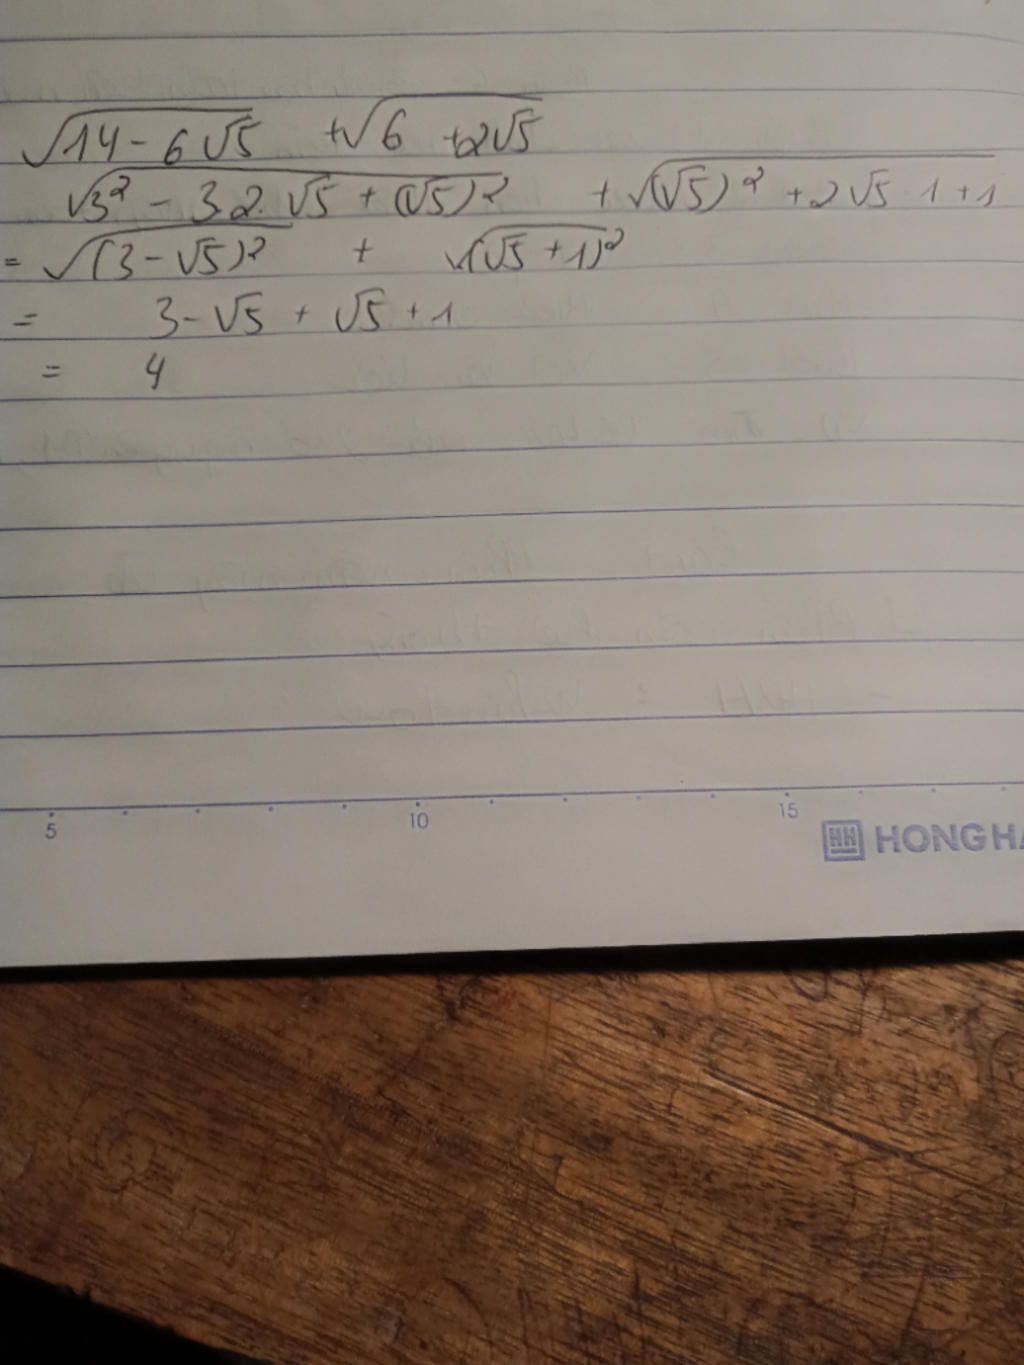 √14 - 6√5 + √6 + 2√5
√3² - 3.2.√5 + (√5)² + √(√5)² + 2√5 . 1 + 1
= √(3 - √5)² + √(√5 + 1)²
= 3 - √5 + √5 + 1
= 4
5 10 15
HH HONG HA